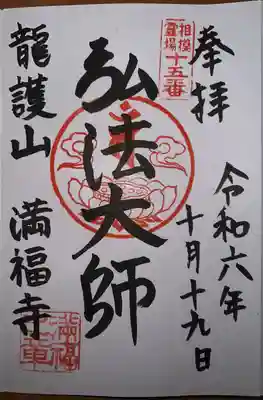 奉拝
令和六年
十月十九日
相模
霊場
十五番
弘法大師
龍護山 満福寺